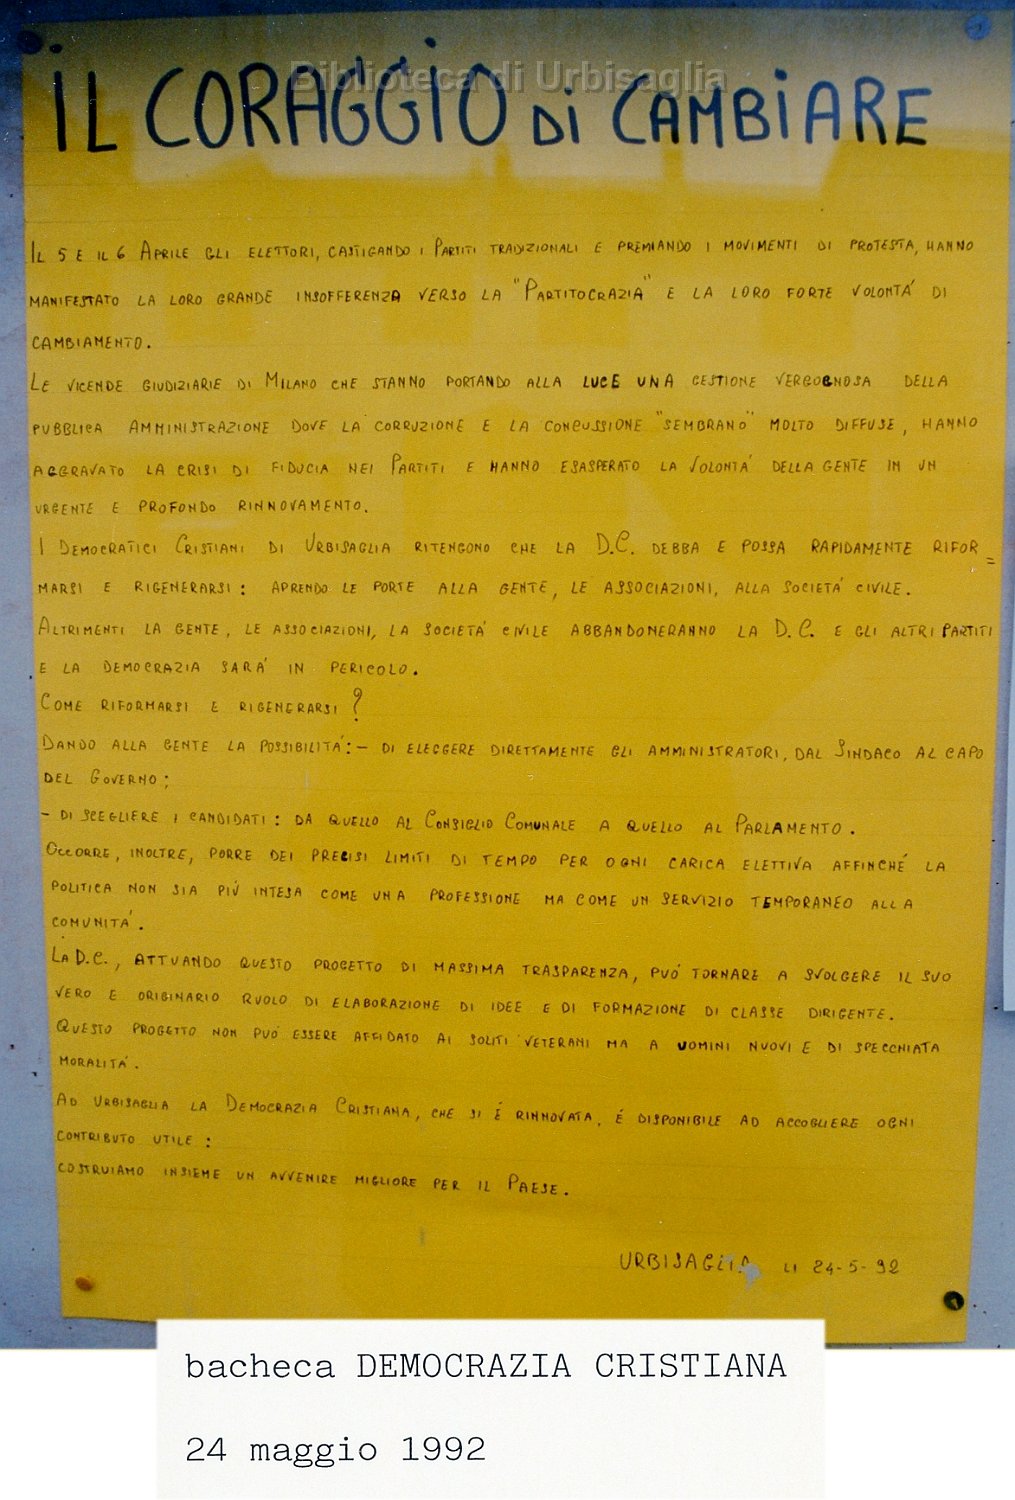 Biblioteca di Urbisaglia
IL CORAGGIO Di CAMBiARE
IL 5 E IL 6 APRILE GLI ELETTORI, CASTIGANDO I PARTITI TRADIZIONALI E PREMIANDO I MOVIMENTI DI PROTESTA, HANNO
MANIFESTATO LA LORO GRANDE INSOFFERENZA VERSO LA "PARTITOCRAZIA" E LA LORO FORTE VOLONTA' DI
CAMBIAMENTO.
LE VICENDE GIUDIZIARIE DI MILANO CHE STANNO PORTANDO ALLA LUCE UNA GESTIONE VERGOGNOSA DELLA
PUBBLICA AMMINISTRAZIONE DOVE LA CORRUZIONE E LA CONCUSSIONE "SEMBRANO" MOLTO DIFFUSE, HANNO
AGGRAVATO LA CRISI DI FIDUCIA NEI PARTITI E HANNO ESASPERATO LA VOLONTA' DELLA GENTE IN UN
URGENTE E PROFONDO RINNOVAMENTO.
I DEMOCRATICI CRISTIANI DI URBISAGLIA RITENGONO CHE LA D.C. DEBBA E POSSA RAPIDAMENTE RIFOR=
MARSI E RIGENERARSI: APRENDO LE PORTE ALLA GENTE, LE ASSOCIAZIONI, ALLA SOCIETA' CIVILE.
ALTRIMENTI LA GENTE, LE ASSOCIAZIONI, LA SOCIETA' CIVILE ABBANDONERANNO LA D.C. E GLI ALTRI PARTITI
E LA DEMOCRAZIA SARA' IN PERICOLO.
COME RIFORMARSI E RIGENERARSI?
DANDO ALLA GENTE LA POSSIBILITA': - DI ELEGGERE DIRETTAMENTE GLI AMMINISTRATORI, DAL SINDACO AL CAPO
DEL GOVERNO;
- DI SCEGLIERE I CANDIDATI: DA QUELLO AL CONSIGLIO COMUNALE A QUELLO AL PARLAMENTO.
OCCORRE, INOLTRE, PORRE DEI PRECISI LIMITI DI TEMPO PER OGNI CARICA ELETTIVA AFFINCHE' LA
POLITICA NON SIA PIU' INTESA COME UNA PROFESSIONE MA COME UN SERVIZIO TEMPORANEO ALLA
COMUNITA'.
LA D.C., ATTUANDO QUESTO PROGETTO DI MASSIMA TRASPARENZA, PUO' TORNARE A SVOLGERE IL SUO
VERO E ORIGINARIO RUOLO DI ELABORAZIONE DI IDEE E DI FORMAZIONE DI CLASSE DIRIGENTE.
QUESTO PROGETTO NON PUO' ESSERE AFFIDATO AI SOLITI VETERANI MA A UOMINI NUOVI E DI SPECCHIATA
MORALITA'.
AD URBISAGLIA LA DEMOCRAZIA CRISTIANA, CHE SI E' RINNOVATA, E' DISPONIBILE AD ACCOGLIERE OGNI
CONTRIBUTO UTILE:
COSTRUIAMO INSIEME UN AVVENIRE MIGLIORE PER IL PAESE.
URBISAGLIA LI 24-5-92
bacheca DEMOCRAZIA CRISTIANA
24 maggio 1992